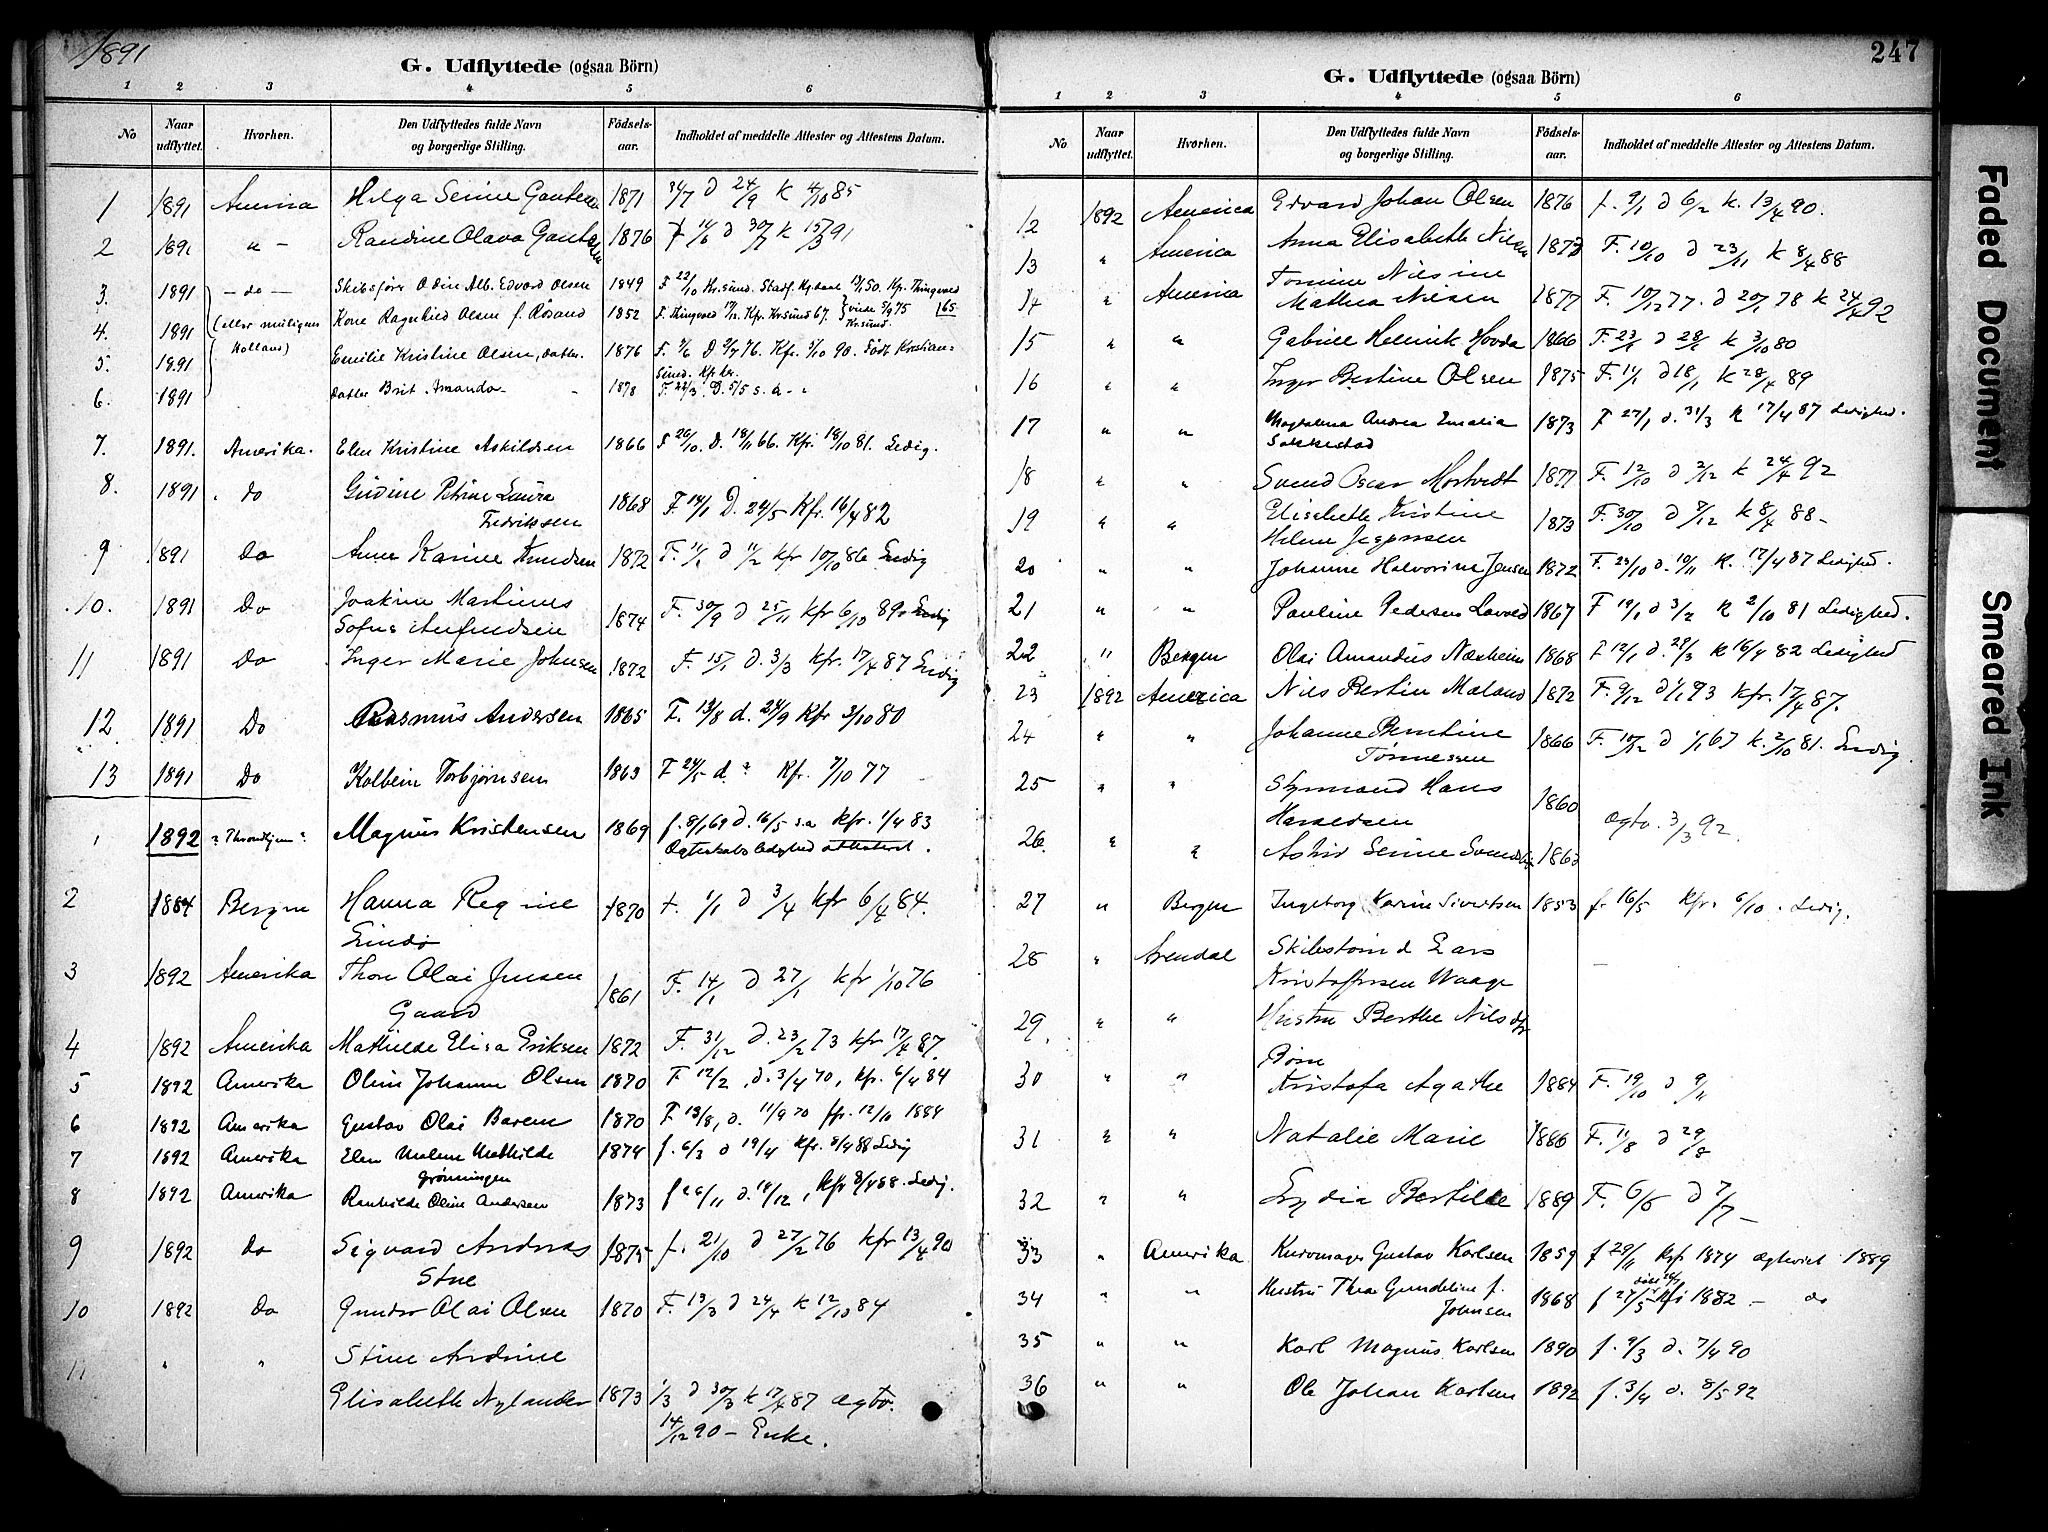 1891
G. Udflyttede (ogsaa Börn)
1 2 3 4 5 6
No Naar udflyttet. Hvorhen. Den Udflyttedes fulde Navn og borgerlige Stilling. Födsels-aar. Indholdet af meddelte Attester og Attestens Datum.
1 1891 America Helga Serine 1871 d 24/9 k 4/10 85
2 1891 " - Randine Olava 1876 d 30/7 k 15/3 91
3. 1891 - do - Skibsfører Odin Alb. Edvard Olsen 1849 F. 22/10 Kr.sund.
4. 1891 (eller muligens Kone Ragnhild Olsen f. Røsand 1852
5. 1891 Holland) Emilie Kristine Olsen, datter 1876
6. 1891 datter Brit Amanda - 1878
7. 1891. Amerika. Elen Kristine Askildsen 1866 F 26/10. D. 18/11 66. Kfr. 18/10 81. Ledig.
8. 1891. do Gudine Petrine Laura
Fedriksen 1868 F. 14/1 D. 24/5 Kfr. 16/4 82
9 1891 Do Anne Karine Knudsen 1872 F. 11/1 d 11/2 kfr 10/10 86 Ledig
10. 1891 Do Joakim Martinus
Sofus 1874 F. 30/9 d 25/11 kfr 6/10 89 Ledig
11 1891 Do Inger Marie Johnsen 1872 F. 15/1 d. 3/3 Kfr. 17/4 87 Ledig
12 1891 Do Rasmus Andersen 1865 F. 13/8 d. 24/9 Kfr 3/10 80
13 1891 Do Kolbein Torbjørnsen 1863 F 24/5 d. ? Kfr. 7/10 77
1 1892 ? Throndhjem ? Magnus Kristensen 1869 f. 8/1 69 d. 16/5 s.a Kfr. 1/4 83
Ægteskabsledighed attesteret.
2 1884 Bergen Hanna Regine 1870 f. 1/1 d 3/4 Kfr 6/4 84.
Lindø
3 1892 Amerika Thore Olai Jensen
Gaard 1861 F. 14/1 d 27/1 kfr 1/10 76
4 1892 Amerika Mathilde Elisa Eriksen 1872 F. 31/12 d. 23/2 73 kfr 17/4 87.
5 1892 Amerika Oline Johanne Olsen 1870 F 12/2, d. 3/4 70, kfr. 6/4 84
6 1892 Amerika Gustav Olai Barem 1870 F 13/8, d. 11/9 70 kfr. 12/10 1884
7 1892 Amerika Elen Malene Mathilde
Grønningen 1874 f. 6/3 d 19/4 Kfr. 8/4 88 Ledig
8 1892 Amerika Ranhilde Oline Andersen 1873 d. 14/12, Kfr 8/4 88. Ledig.
9 1892 Do Sigvard Andreas
Stue 1875 f. 21/10 d 27/2 76 Kfr 13/4 90
10 1892 Do Gunder Olai Olsen 1870 F. 13/3 d 24/4 k 12/10 84
11 " " Stine Andrine
Elisabeth Nylander 1873 1/3 d 30/3 k 17/4 87 ægtv.
14/12 90 - Enke.
247
G. Udflyttede (ogsaa Börn)
1 2 3 4 5 6
No Naar udflyttet. Hvorhen. Den Udflyttedes fulde Navn og borgerlige Stilling. Födsels-aar. Indholdet af meddelte Attester og Attestens Datum.
12 1892 America Edvard Johan Olsen 1876 f. 9/1 d 6/2 k. 13/4 90.
13 " America Anna Elisabeth Nilsen 1873 F. 10/10 d 23/11 k 8/4 88
14 " America Tomine Nilsine
Mathea Nilsen 1877 F. 10/12 77. d 20/1 78 k 24/4 92
15 " " Gabriel Helmik Hovda 1866 k 3/10 80
16 " " Inger Bertine Olsen 1875 F. 11/1 d 18/1 k 28/4 89
17 " " Magdalena Andrea Emalia
1873 F 27/1 d. 31/3 k 17/4 87 Ledighed.
18 " " Svend Oscar Mortvedt 1877 F. 12/10 d 2/12 k 24/4 92
19 " " Elisabeth Kristine
Helene Jespersen 1873 F. 30/10 d 7/12 k 8/4 88 -
20 " " Johanne Halvorine Jensen 1872 F. 23/10 d. 10/11 k. 17/4 87 Ledighed.
21 " " Pauline Pedersen 1867 F 19/1 d 3/2 k 2/10 81 Ledighed.
22 " Bergen Olai Amandus Næsheim 1868 F 12/1 d. 29/3 k 16/4 82 Ledighed
23 1892 America Nils Bertin Maland 1872 F. 9/12 d 1/1 73 kfr. 17/4 87.
24 " " Johanne Berntine
Tønnessen 1866 F. 10/12 d 1/1 67 k. 2/10 81. Ledig.
25 " " Hans
Haraldsen 1860 ægtv. 3/3 92.
26. " " Astrid Serine 1863
27 " Bergen Ingeborg Karine Sivertsen 1853 f. 16/5 Kfr. 6/10. Ledig.
28 " Arendal Skibstømd Lars
Kristoffersen Waage -
29. " " Hustru Berthe Nilsdtr
Børn
30 " " Kristofa Agathe 1884 F. 19/10 d 9/11
31 " " Natalie Marie 1886 F. 11/8 d 29/8
32 " " Lydia Bertille 1889 F. 6/6 d 7/7 -
33 " Amerika Kurvmager Gustav Karlsen 1859 f 29/11 Kfr 1874 ægteviet 1889
34 " " Hustru Thea Gundeline f.
Johnsen 1868 1882 - do
35 " " Karl Magnus Karlsen 1890 f. 9/3 d. 7/4 90
36 " " Ole Johan Karlsen 1892 f. 3/4 d. 8/5 92
Faded Document
Smeared Ink